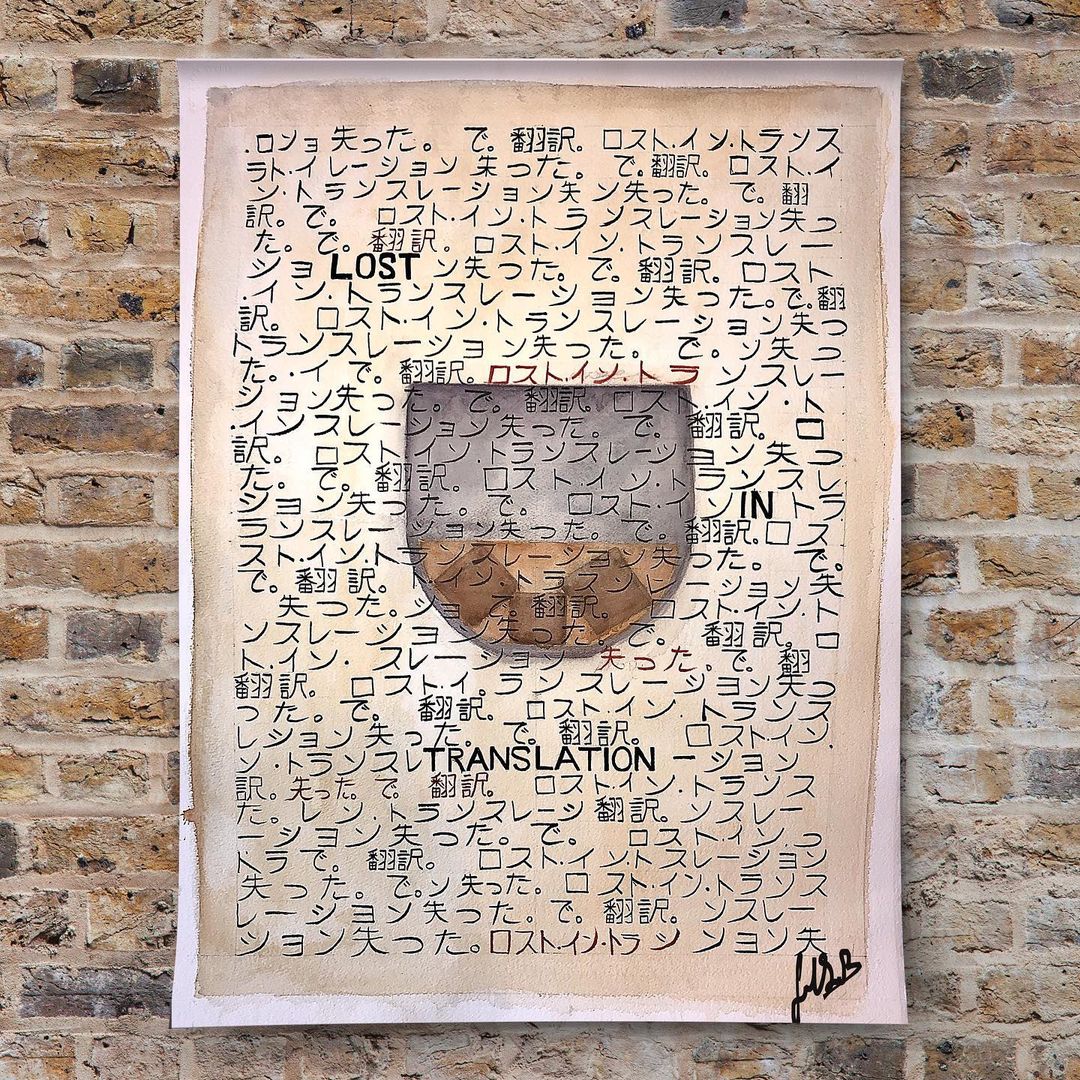 .ロンョ失った。で。翻訳。ロスト・イン・トランス
ラト・イレーション失った。で。翻訳。ロスト・イ
ン・トランスレーション失ン失った。で。翻
訳。で。ロスト・イン・トランスレーション失っ
た。で。翻訳。ロスト・イン・トランスレー
ショLOSTン失った。で。翻訳。ロスト
・イン・トランスレーション失った。で。翻
訳。ロスト・イン・トランスレーション失っ
トランスレーション失った。で。ン失っ
た。・イで。翻訳。ロスト・イン・トランスレー
ション失った。で。翻訳。ロスト・イン・ト
・インスレーション失った。で。翻訳。ロ
訳。ロスト・イン・トランスレーション失っ
た。で。翻訳。ロスト・イン・トランスレ
ション失った。で。ロスト・インINトラ
ランスレーション失った。で。翻訳。ロス
スト・イン・トランスレーション失った。で。
で。翻訳。ト・イン・トラスンレーション失
失った。ションで。翻訳。ロスト・イン・ト
ンスレーション失った。で。翻訳。ロ
ト・イン・スレーション失った。で。翻
翻訳。ロスト・イ。ランスレーション失っ
った。で。翻訳。ロスト・イン・トランス
レション失った。で。翻訳。ロストイン・
ン・トランスレTRANSLATIONーション
訳。失った。で。翻訳。ロストイン・トランス
た。レン・トランスレーシ翻訳。ンスレー
ーション失った。で。ロスト・イン・っ
トラで。翻訳。ロスト・イン・トスレーション
失った。で。ン失った。ロスト・イン・トランス
レーション失った。で。翻訳。ンスレー
ション失った。ロスト・イン・トラシンョン失